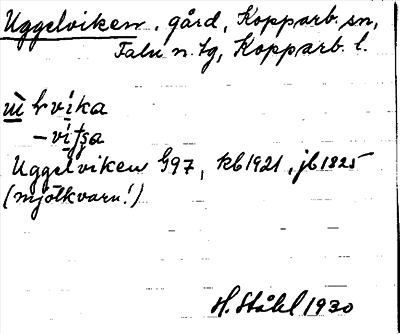 Uggelviken, gård, Kopparb. sn,
Falu n. tg, Kopparb. l.
vika
Uggelviken G97, kb 1921, jb 1825
(mjölkvarn!)
H. Ståhl 1930